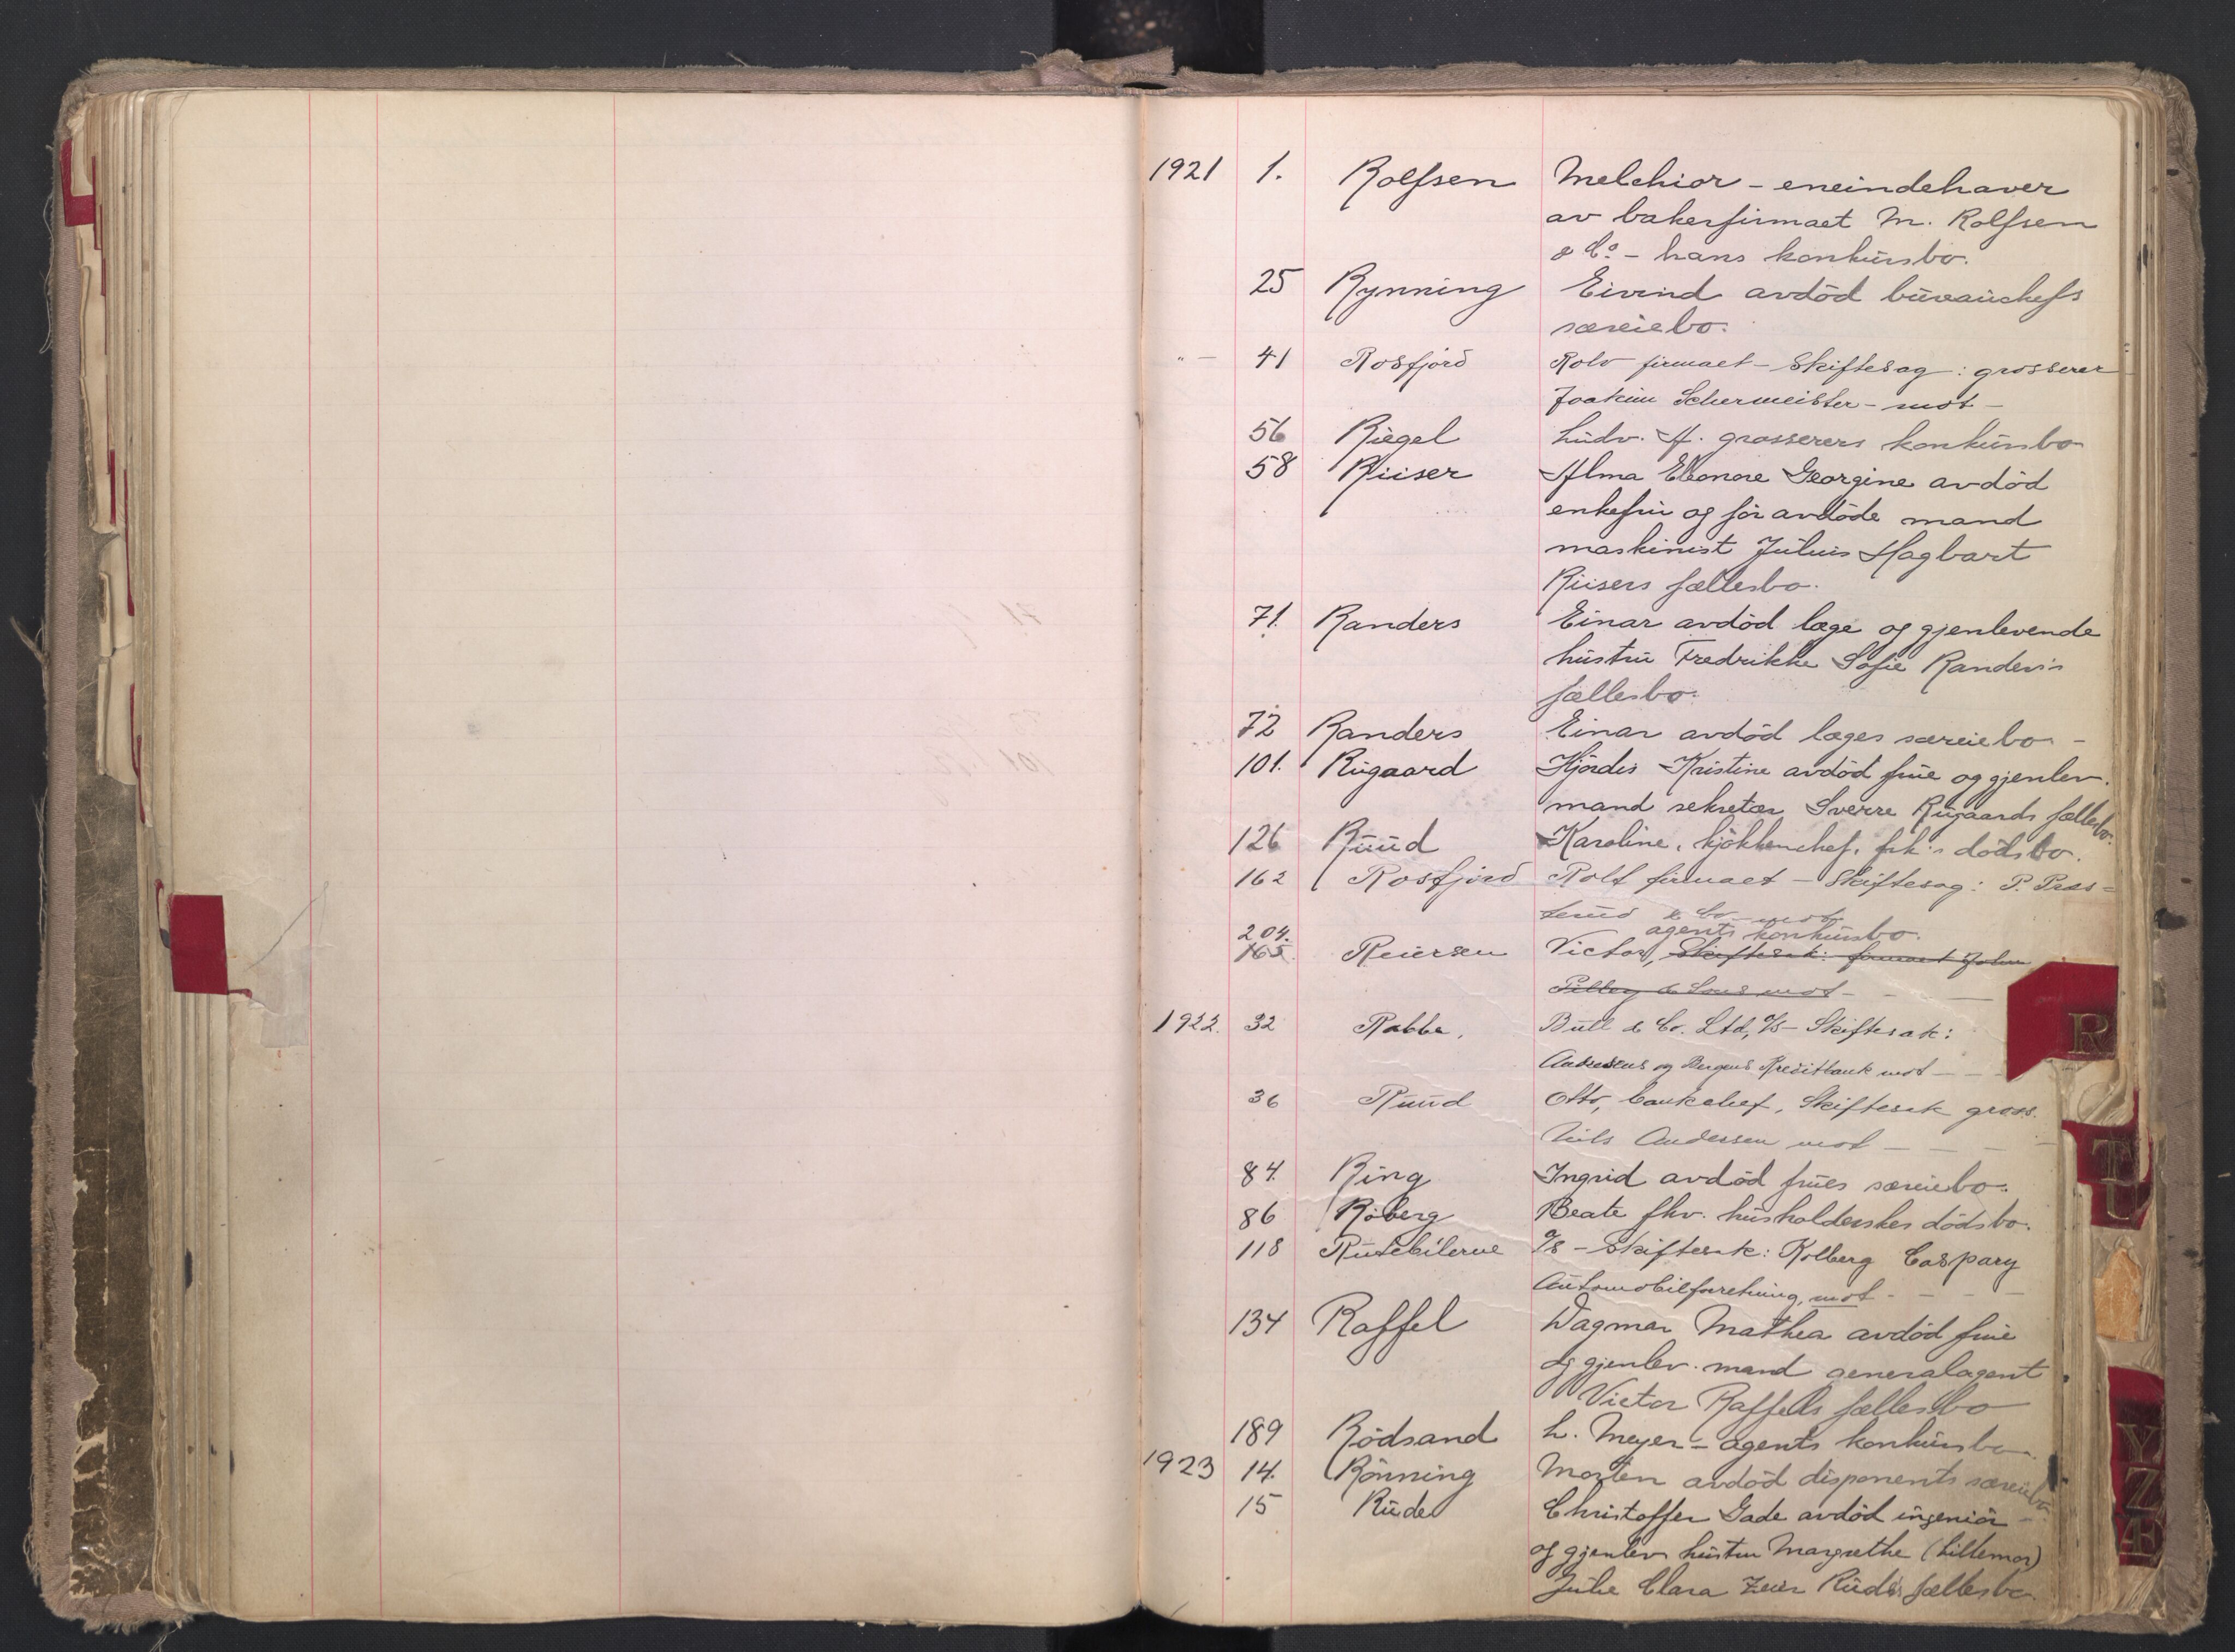 1921 1. Rolfsen Melchior - eneindehaver
av bakerfirmaet M. Rolfsen
& Co. - hans konkursbo.
25 Rynning Eivind avdød bureauchefs
særeiebo.
" — 41 Rosfjord Rolv firmaet - Skiftesag: grosserer
Joakim Schermeister - mot -
56 Riegel Ludv. A. grosserers konkursbo
58 Riiser Alma Eleonore Georgine avdød
enkefru og før avdøde mand
maskinist Julius Hagbart
Riisers fællesbo.
71. Randers Einar avdød læge og gjenlevende
hustru Fredrikke Sofie Randers's
fællesbo.
72 Randers Einar avdød læges særeiebo -
101. Rugaard Hjørdis Kristine avdød frue og gjenlev.
mand sekretær Sverre Rugaards fællesbo.
126 Ruud Karoline, kjøkkenchef, frk's dødsbo.
162 Rosfjord Rolf firmaet - Skiftesag: P. Præs-
terud & Co - mot
204. agents konkursbo.
165. Reiersen Victor, Skiftesak: firmaet John
Pilley & Sons mot -
1922. 32 Rabbe, Bull & Co. Ltd, A/S - Skiftesak:
Andresens og Bergens Kreditbank mot - -
36 Ruud Otto, bankchef, Skiftesak gross.
Nils Andersen mot - - -
84. Ring Ingrid avdød frues særeiebo.
86 Røberg Beate fhv. husholderskes dødsbo.
118 Rutebilerne A/S - Skiftesak: Kolberg Caspary
Automobilforretning, mot - - - -
134 Raffel Dagmar Mathea avdød frue
og gjenlev. mand generalagent
Victor Raffels fællesbo
189 Rødsand L. Meyer - agents konkursbo
1923 14. Rønning Morten avdød disponents særeiebo
15 Rude Christoffer Gade avdød ingeniør -
og gjenlev hustru Margrethe (Lillemor)
Julie Clara Zeier Rudes fællesbo
R
T
U
Y
Z
Æ